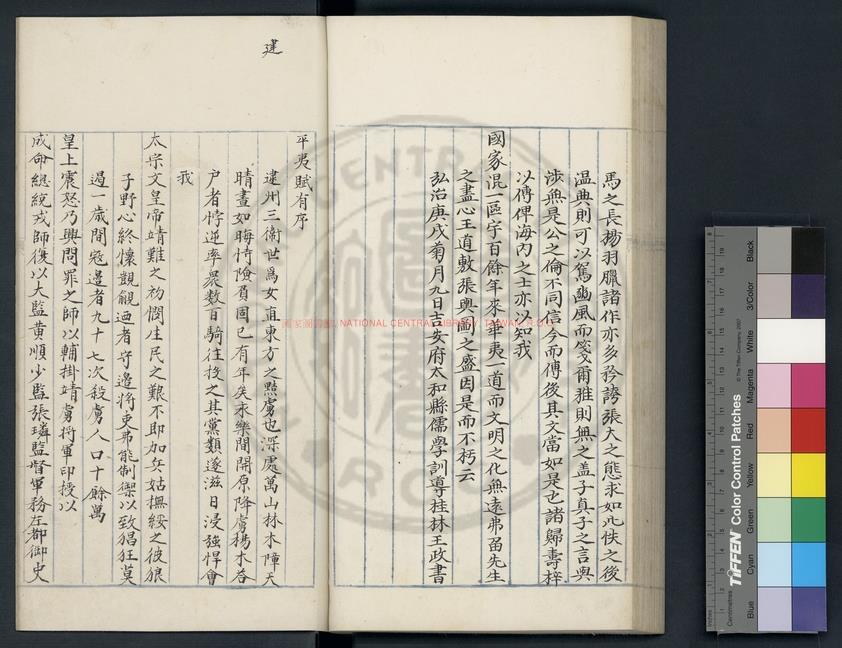 馬之長楊羽臘諸作亦多矜誇張大之態求如此帙之後
温典則可以駕豳風而箋爾雅則無之盖子真子之言與
涉無是公之倫不同信今而傳後其文當如是也諸歸壽梓
以傳俾海内之士亦以知我
國家混一區宇百餘年來華夷一道而文明之化無遠弗畱先生
之盡心王道敷張輿圖之盛因是而不朽云
弘治庚戌菊月九日吉安府太和縣儒學訓導桂林王政書
建
平夷賦有序
建州三衛世爲女直東方之黠虜也深處萬山林木障天
晴晝如晦恃險負固已有年矣永樂間開原降虜楊木荅
户者悖逆率衆数百騎往投之其黨類遂滋日浸強悍會
我
太宗文皇帝靖難之初憫生民之艱不即加兵姑撫綏之彼狼
子野心終懷覬覦迺者守邊將吏弗能制禦以致猖狂莫
過一歲間寇邊者九十七次殺虜人口十餘萬
皇上震怒乃興問罪之師以輔掛靖虜将軍印授以
成命總統戎師復以太監黄順少監張璘監督軍務左都御史
國家圖書館, NATIONAL CENTRAL LIBRARY, TAIWAN, R.O.C.
TIFFEN Color Control Patches
© The Tiffen Company, 2007
Centimetres
Inches
Blue
Cyan
Green
Yellow
Red
Magenta
White
3/Color
Black